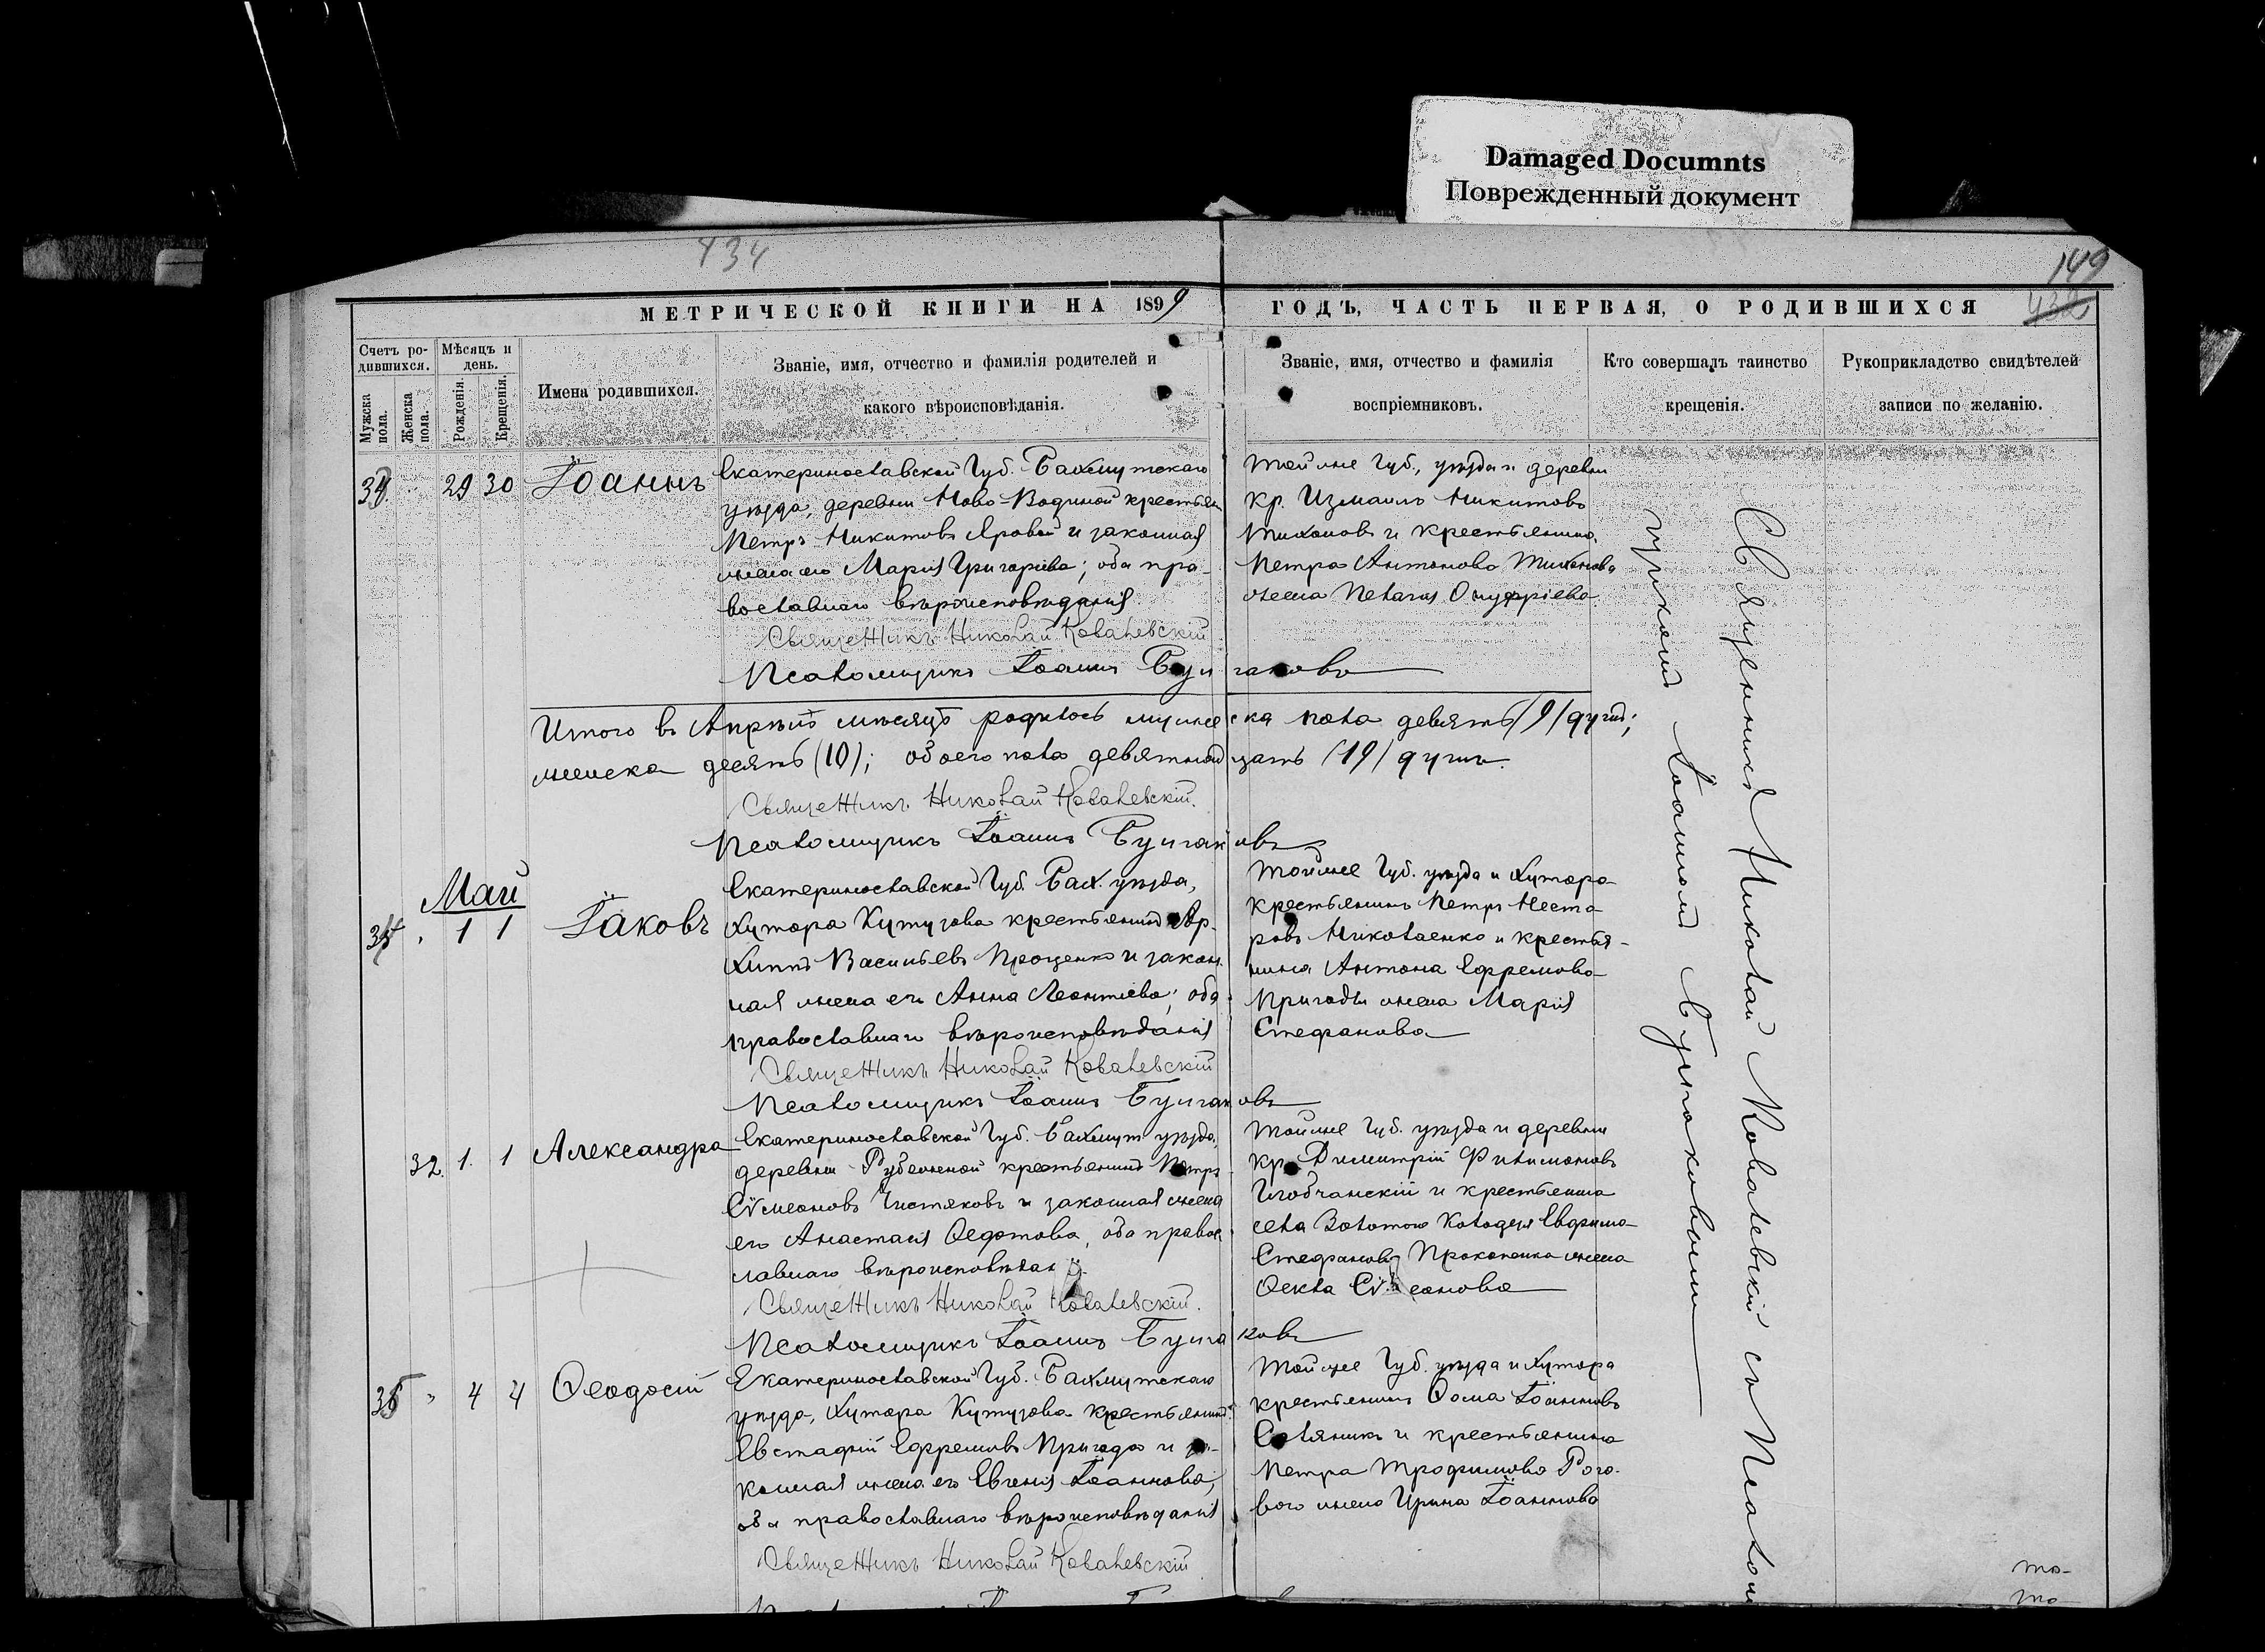 Damaged Documnts
Поврежденный документ
434
149
432
МЕТРИЧЕСКОЙ КНИГИ НА 1899
ГОДЪ, ЧАСТЬ ПЕРВАЯ, О РОДИВШИХСЯ
Счетъ ро-
дившихся.
Мужска
пола.
Женска
пола.
Мѣсяцъ и
день.
Рожденія.
Крещенія.
Имена родившихся.
Званіе, имя, отчество и фамилія родителей и
какого вѣроисповѣданія.
Званіе, имя, отчество и фамилія
воспріемниковъ.
Кто совершалъ таинство
крещенія.
Рукоприкладство свидѣтелей
записи по желанію.
29 30 Іоаннъ
Екатеринославской Губ. Бахмутскаго
уѣзда, деревни Ново-Водиной крестьян
Петръ Никитовъ Яровой и законная
жена его Марія Григоріева; оба пра-
вославнаго вѣроисповѣданія.
Священникъ Николай Ковалевскій
Псаломщикъ Іоаннъ Булгаковъ
Тойже Губ., уѣзда и деревни
кр. Измаилъ Никитовъ
Тихоновъ и крестьянина
Петра Антонова Тихонова
жена Пелагія Онуфріева.
Итого въ Апрѣлѣ мѣсяцѣ родилось мужеска пола девять /9/ душъ;
женска десять (10); обоего пола девятнадцать /19/ душъ.
Священникъ Николай Ковалевскій.
Псаломщикъ Іоаннъ Булгаковъ
Май
1 1 Іаковъ
Екатеринославской Губ. Бах. уѣзда,
хутора Кутузова крестьянинъ Ар-
хиппъ Васильевъ Проценко и закон
ная жена его Анна Леонтіева; оба
православнаго вѣроисповѣданія
Священникъ Николай Ковалевскій
Псаломщикъ Іоаннъ Булгаковъ
Тойже Губ. уѣзда и хутора
крестьянинъ Петръ Несто
ровъ Николаенко и крестья-
нина Антона Ефремова
Пригоды жена Марія
Стефанова
32. 1. 1 Александра
Екатеринославской Губ. Бахмут уѣзда,
деревни Рубежной крестьянинъ Петръ
Сѵмеоновъ Чистяковъ и законная жена
его Анастасія Ѳедотова, оба правос
лавнаго вѣроисповѣдан
Священникъ Николай Ковалевскій.
Псаломщикъ Іоаннъ Булгаковъ
Тойже Губ. уѣзда и деревни
кр. Димитрій Филимоновъ
и крестьянина
села Золотого Колодезя Евфима
Стефанова Прокопенка жена
Ѳекла Сѵмеонова
35 " 4 4 Ѳеодосій
Екатеринославской Губ. Бахмутскаго
уѣзда, хутора Кутузова крестьянинъ
Евстафій Ефремовъ Пригода и за-
конная жена его Евгенія Іоаннова;
оба православнаго вѣроисповѣданія
Священникъ Николай Ковалевскій
Тойже Губ. уѣзда и хутора
крестьянинъ Ѳома Іоанновъ
Соляникъ и крестьянина
Петра Трофимова Рого-
вого жена Ирина Іоаннова
Священникъ Николай Ковалевскій съ Псалом
щикомъ Іоанномъ Булгаковымъ
то-
то